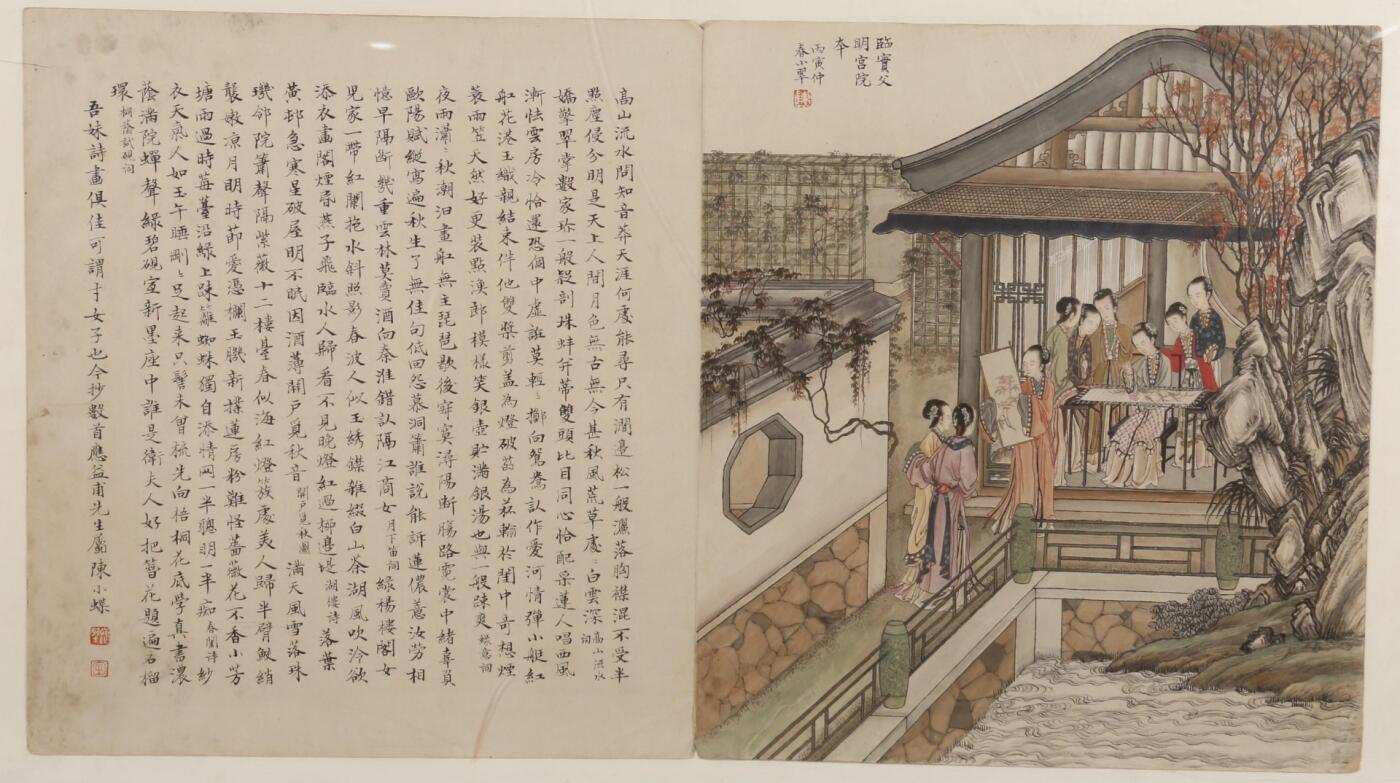 臨實父
明宮院
本
丙寅仲
春小翠
高山流水問知音莽天涯何處能尋只有澗邊松一般灑落胸襟混不受半
點塵侵分明是天上人間月色無古無今甚秋風荒草處〻白雲深 高山流水詞
嬌擎翠掌數家珍一般疑剖珠蚌并蒂雙頭比目同心恰配采蓮人唱西風
漸怯雲房冷恰還恐個中虛誑莫輕〻擲向鴛鴦認作愛河情彈小艇紅
舡花港玉纖親結束伴他雙槳剪蓋為燈破菂為於閨中奇想煙
蓑雨笠天然好更裝點漁郎模樣笑銀壺貯滿銀湯也與一般疎爽 詞
夜雨瀟〻秋潮汩畫舡無主琵琶歇後寂寞潯陽斷腸路霓裳中緒辜負
歐陽賦縱寫遍秋生了無佳句低回怨慕洞簫誰說能訴蓮儂薏汝勞相
憶早隔斷幾重雲林莫賣酒向秦淮錯認隔江商女 月下笛詞 綠楊樓閣女
兒家一帶紅闌抱水斜照影春波人似玉綉雜綴白山茶湖風吹冷欲
添衣畫閣煙昏燕子飛臨水人歸看不見晚燈紅過柳邊堤 湖樓詩 落葉
黃邨急寒星破屋明不眠因酒薄開戶覓秋音 開戶見秋圖 滿天風雪落珠
璣鄰院簫聲隔紫薇十二樓臺春似海紅燈簇處美人歸半臂鮫綃
襲嫩涼月明時節愛憑欄玉新蓮房粉難怪薔薇花不香小芳
塘雨過時莓薹沿綠上疎籬蜘蛛獨自添情网一半聰明一半痴 春閨詩 紗
衣天氣人如玉午睡剛〻足起來只髻未曾梳先向梧桐花底學真書濃
蔭滿院蟬聲綠碧硯室新墨座中誰是衛夫人好把簪花題遍石榴
環 桐蔭試硯詞
吾妹詩畫俱佳可謂才女子也今抄數首應益甫先生屬陳小蝶